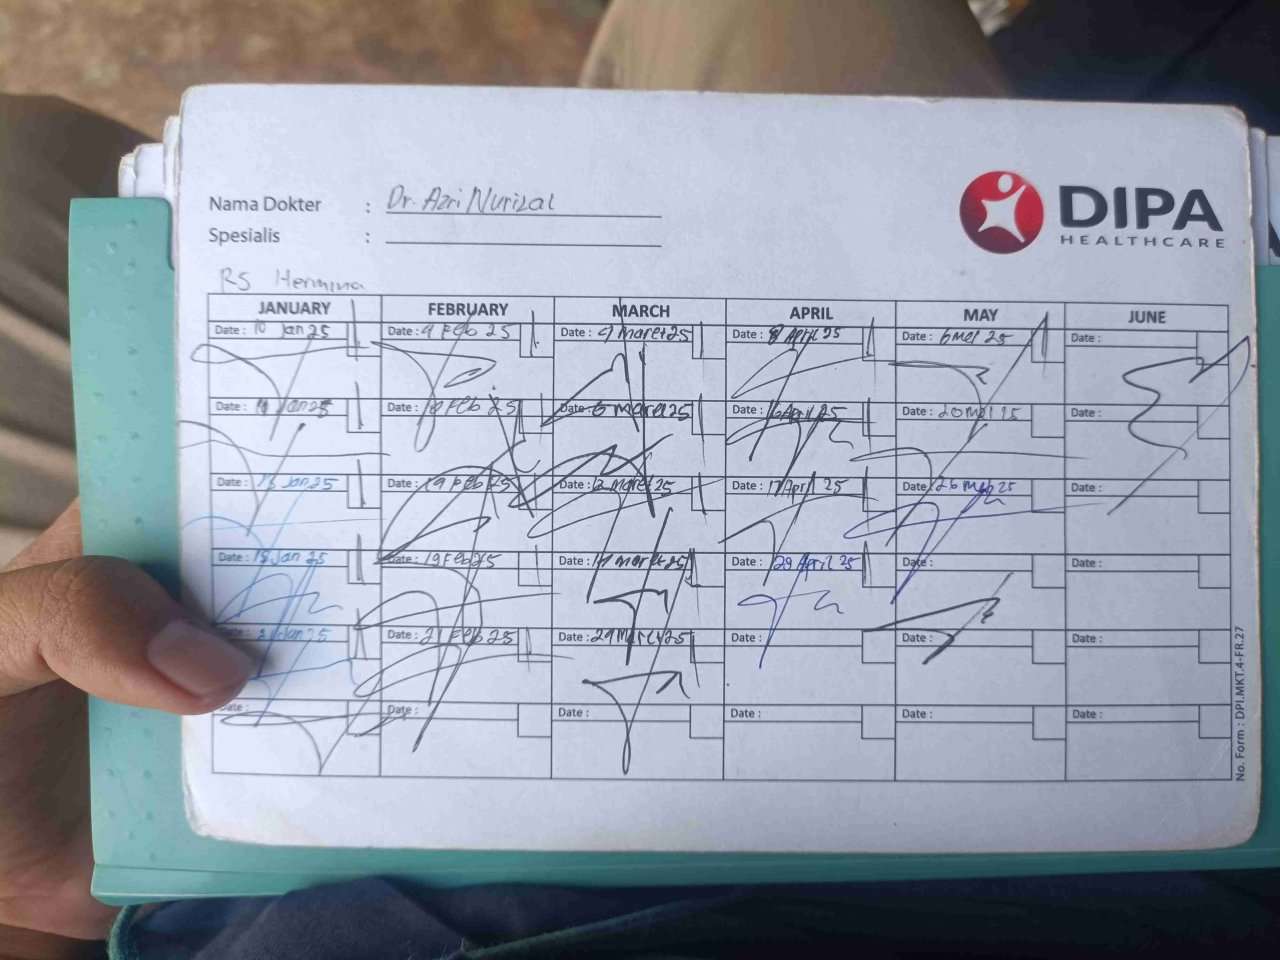 Nama Dokter : Dr. Azri Nurizal
Spesialis :
DIPA
HEALTHCARE
RS Hermina
JANUARY FEBRUARY MARCH APRIL MAY JUNE
Date : 10 Jan 25 Date : 4 Feb 25 Date : 4 Maret 25 Date : 8 April 25 Date : 6 Mei 25 Date :
Date : Jan 25 Date : Feb 25 Date : 5 Maret 25 Date : 16 April 25 Date : 20 Mei 25 Date :
Date : Jan 25 Date : 19 Feb 25 Date : Maret 25 Date : 17 April 25 Date : 26 25 Date :
Date : 15 Jan 25 Date : 19 Feb 25 Date : Maret 25 Date : 29 April 25 Date : Date :
Jan 25 Date : 21 Feb 25 Date : 29 Maret 25 Date : Date : Date :
Date : Date : Date : Date : Date : Date :
No. Form : DPI.MKT.4-FR.27